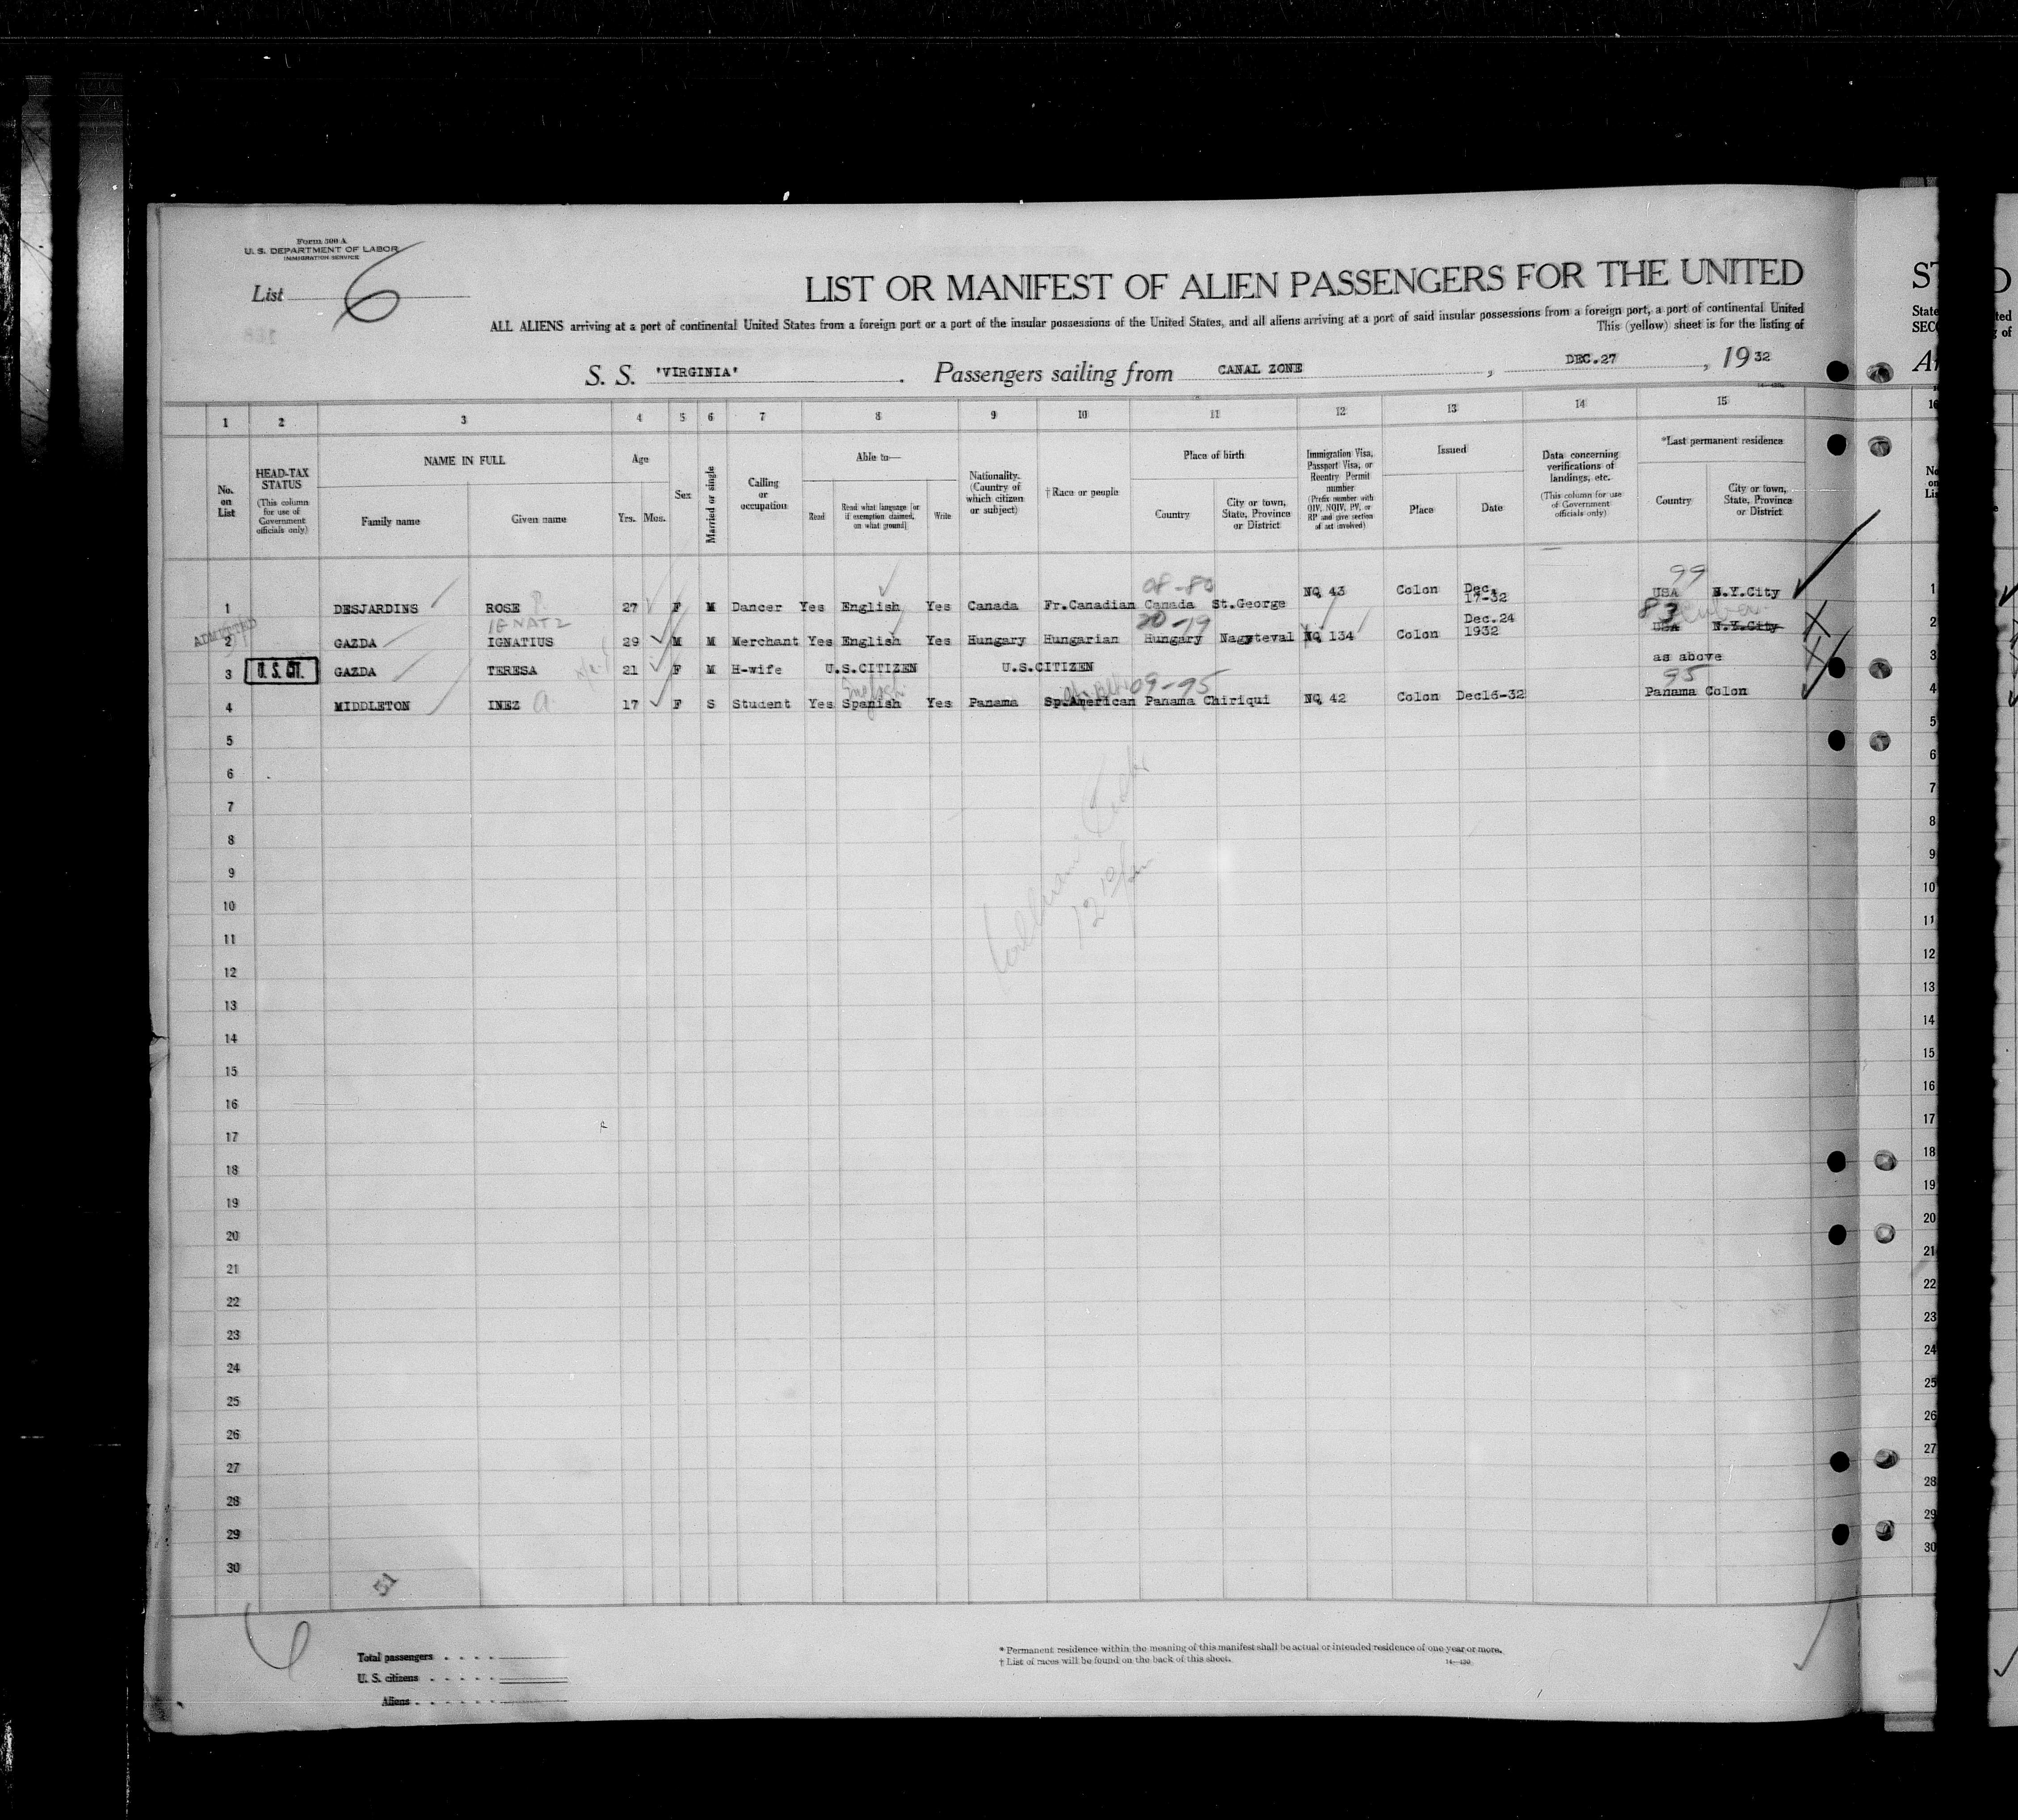 Form 500 A
U. S. DEPARTMENT OF LABOR
IMMIGRATION SERVICE
List 6
LIST OR MANIFEST OF ALIEN PASSENGERS FOR THE UNITED
ALL ALIENS arriving at a port of continental United States from a foreign port or a port of the insular possessions of the United States, and all aliens arriving at a port of said insular possessions from a foreign port, a port of continental United
This (yellow) sheet is for the listing of
S. S. 'VIRGINIA' . Passengers sailing from CANAL ZONE , DEC.27 , 1932
1 2 3 4 5 6 7 8 9 10 11 12 13 14 15
No. on List
HEAD-TAX STATUS
(This column for use of Government officials only)
NAME IN FULL
Family name Given name
Age
Yrs. Mos.
Sex
Married or single
Calling or occupation
Able to—
Read
Read what language [or if exemption claimed, on what ground]
Write
Nationality. (Country of which citizen or subject)
† Race or people
Place of birth
Country
City or town, State, Province or District
Immigration Visa, Passport Visa, or Reentry Permit number
(Prefix number with QIV, NQIV, PV, or RP and give section of act involved)
Issued
Place Date
Data concerning verifications of landings, etc.
(This column for use of Government officials only)
*Last permanent residence
Country
City or town, State, Province or District
08-80 99
1 DESJARDINS ROSE 27 F M Dancer Yes English Yes Canada Fr.Canadian Canada St.George NQ 43 Colon Dec. 17-32 USA N.Y.City
IGNATZ 20-79 83 Cuba
ADMITTED
2 GAZDA IGNATIUS 29 M M Merchant Yes English Yes Hungary Hungarian Hungary Nagyteval NQ 134 Colon Dec.24 1932 USA N.Y.City
3 U. S. CIT. GAZDA TERESA 21 F M H-wife U.S.CITIZEN U.S.CITIZEN as above
English 09-95 95
4 MIDDLETON INEZ a 17 F S Student Yes Spanish Yes Panama Sp.American Panama Chiriqui NQ 42 Colon Dec16-32 Panama Colon
5
6
7
8
9
10
11
12
13
14
15
16
17
18
19
20
21
22
23
24
25
26
27
28
29
30
51
6
Total passengers
U. S. citizens
Aliens
* Permanent residence within the meaning of this manifest shall be actual or intended residence of one year or more.
† List of races will be found on the back of this sheet.
14—430
ST
State
SEC
16
1
2
3
4
5
6
7
8
9
10
11
12
13
14
15
16
17
18
19
20
21
22
23
24
25
26
27
28
29
30